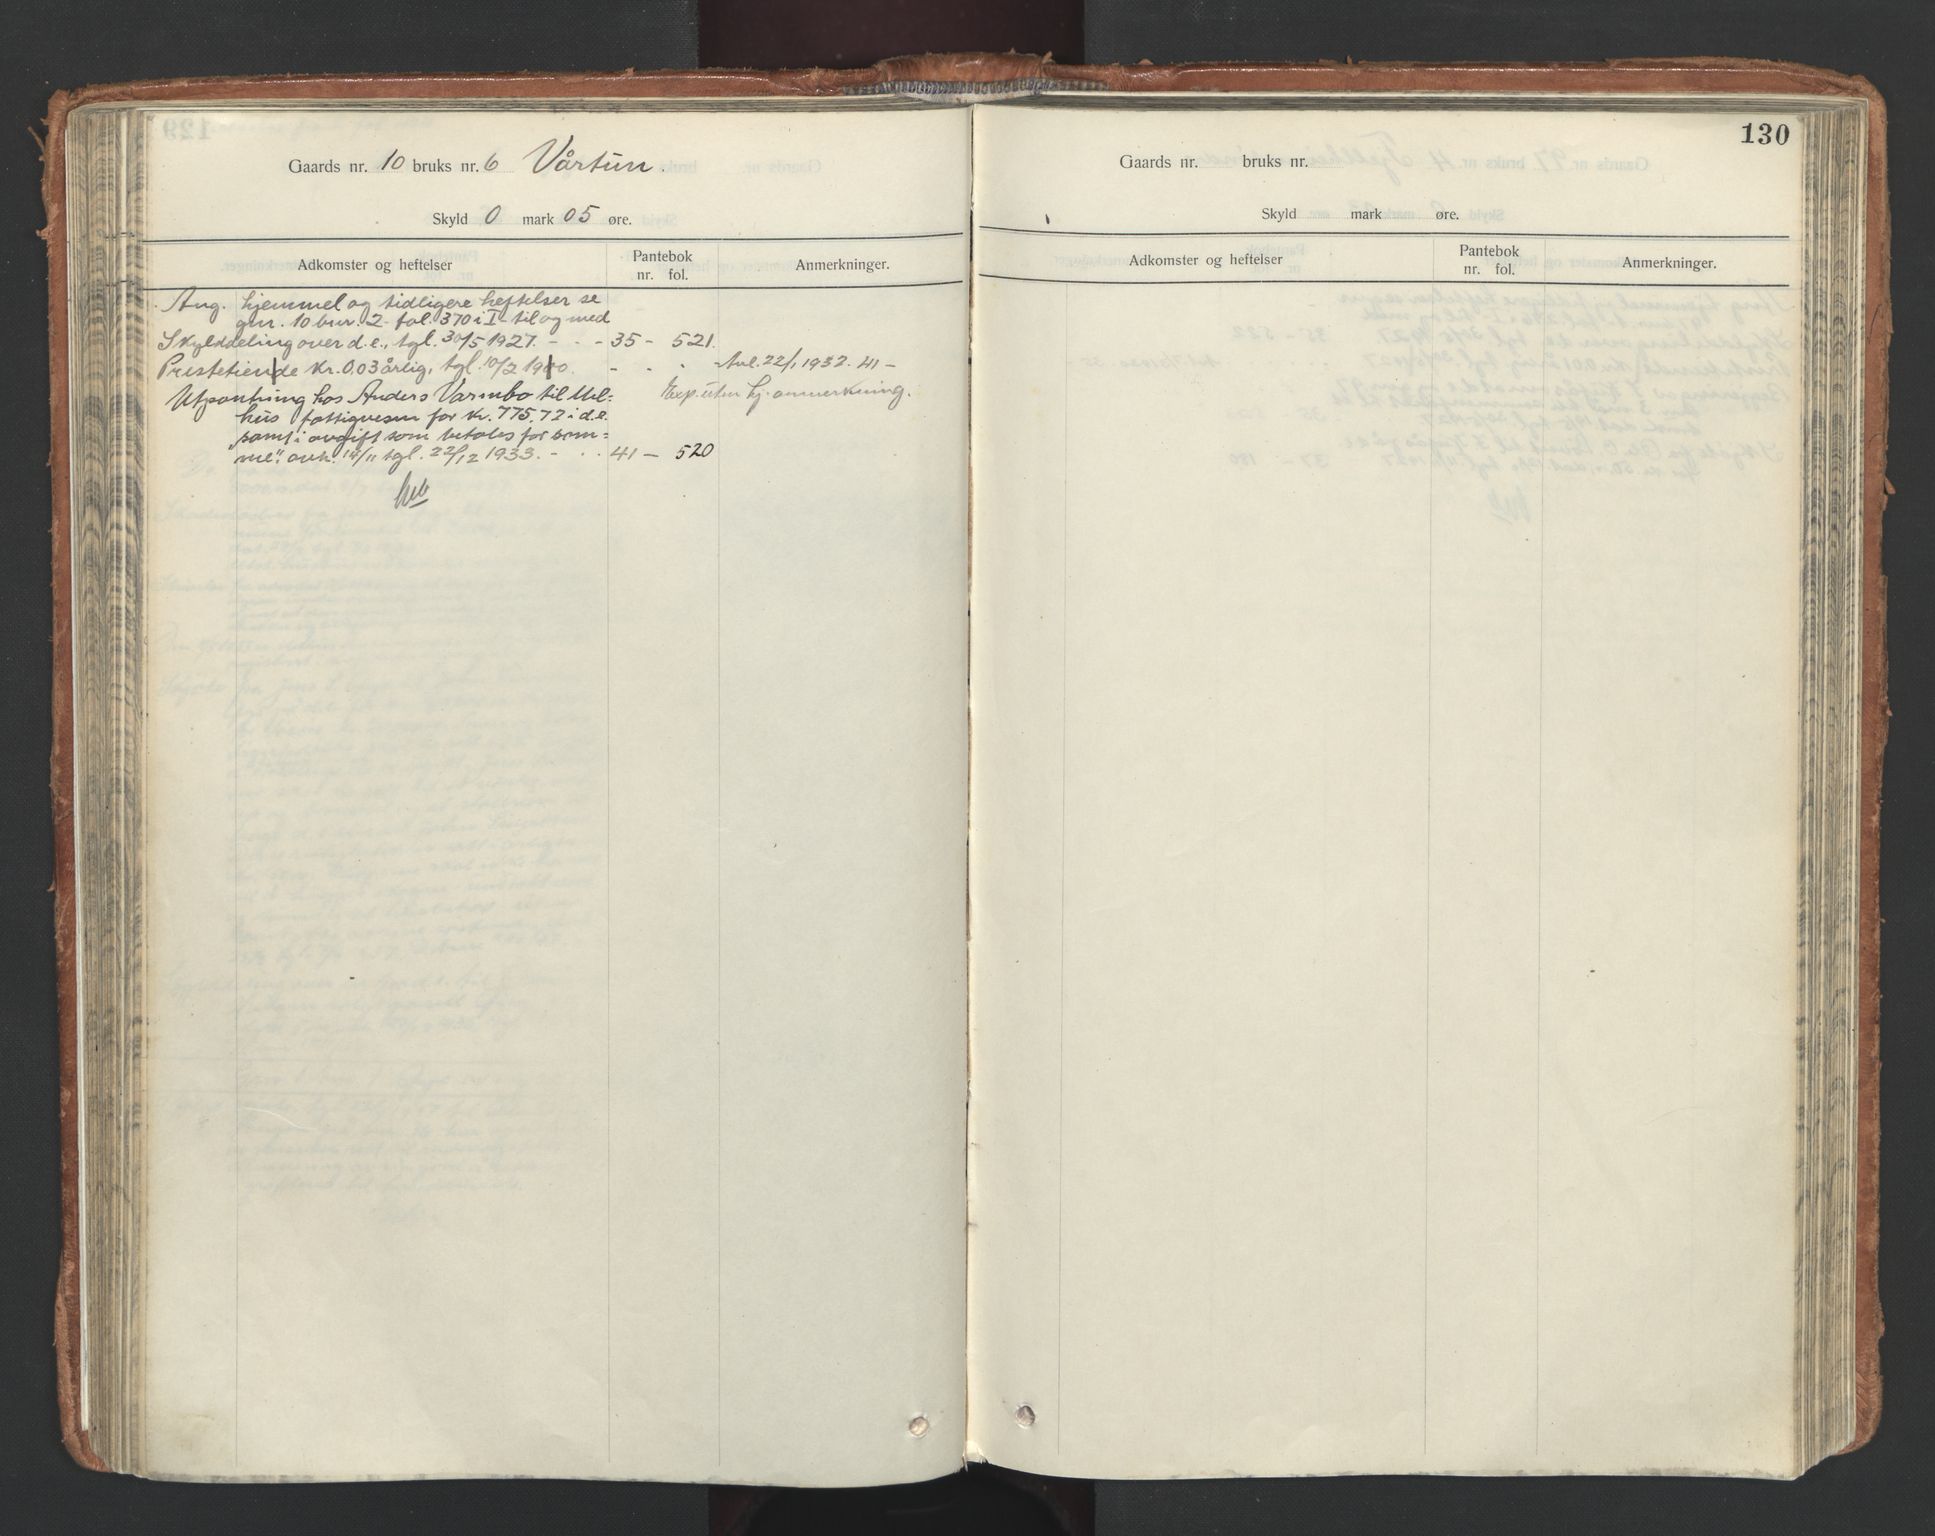 Gaards nr. 10 bruks nr. 6 Vårtun.
Skyld 0 mark 05 øre.
Adkomster og heftelser
Pantebok
nr. fol.
Anmerkninger.
Ang. hjemmel og tidligere heftelser se
gnr. 10 bnr. 2 fol. 370 i I til og med
Skylddeling over d.e., tgl. 30/5 1927. - - - 35 - 521.
Prestetiende kr. 0,03 årlig, tgl. 10/2 19 0. - - - Avl. 22/1 1932. 41 -
Utpantning hos Anders Varmbo til Mel= Exp. uten hj. anmerkning.
hus fattigvesen for kr. 775.72 i d.e.
"samt i avgift som betales for
me". avh. 14/11 tgl. 22/12 1933. - - - 41 - 520
130
Gaards nr. bruks nr.
Skyld mark øre.
Adkomster og heftelser
Pantebok
nr. fol.
Anmerkninger.